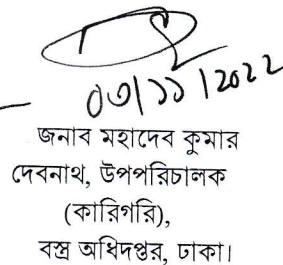 ০৩/১১/২০২২
জনাব মহাদেব কুমার
দেবনাথ, উপপরিচালক
(কারিগরি),
বস্ত্র অধিদপ্তর, ঢাকা।